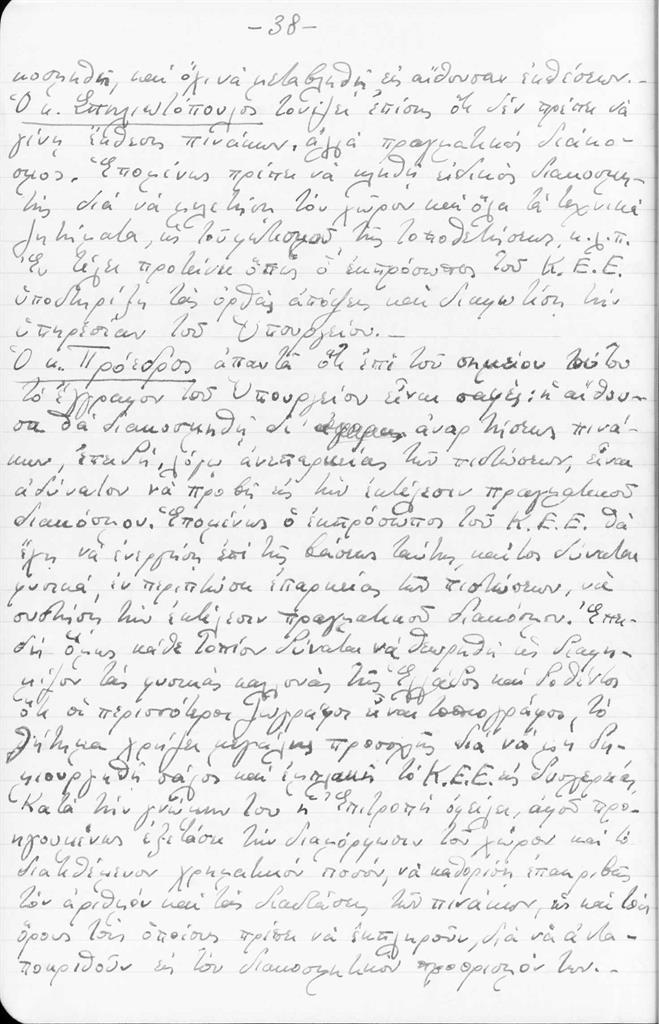 -38-
κοσμηθῇ, καὶ ὄχι νὰ μεταβληθῇ εἰς αἴθουσαν ἐκθέσεων.-
Ὁ κ. Σπηλιωτόπουλος τονίζει ἐπίσης ὅτι δὲν πρέπει νὰ
γίνῃ ἔκθεσις πινάκων, ἀλλὰ πραγματικὸς διάκο-
σμος. Ἑπομένως πρέπει νὰ κληθῇ εἰδικὸς διακοσμη-
τὴς διὰ νὰ μελετήσῃ τὸν χῶρον καὶ ὅλα τὰ τεχνικὰ
ζητήματα, ὡς τοῦ φωτισμοῦ, τῆς τοποθετήσεως, κ.λ.π.
Ἐν τέλει προτείνει ὅπως ὁ ἐκπρόσωπος τοῦ Κ.Ε.Ε.
ὑποστηρίξῃ τὰς ὀρθὰς ἀπόψεις καὶ διαφωτίσῃ τὴν
ὑπηρεσίαν τοῦ Ὑπουργείου.-
Ὁ κ. Πρόεδρος ἀπαντᾷ ὅτι ἐπὶ τοῦ σημείου τούτου
τὸ ἔγγραφον τοῦ Ὑπουργείου εἶναι σαφές: ἡ αἴθου-
σα θὰ διακοσμηθῇ δι' ἀναρτήσεως πινά-
κων, ἐπειδή, λόγῳ ἀνεπαρκείας τῶν πιστώσεων, εἶναι
ἀδύνατον νὰ προβῇ εἰς τὴν ἐκτέλεσιν πραγματικοῦ
διακόσμου. Ἑπομένως ὁ ἐκπρόσωπος τοῦ Κ.Ε.Ε. θὰ
ἔχῃ νὰ ἐνεργήσῃ ἐπὶ τῆς βάσεως ταύτης, καίτοι δύναται
φυσικά, ἐν περιπτώσει ἐπαρκείας τῶν πιστώσεων, νὰ
συστήσῃ τὴν ἐκτέλεσιν πραγματικοῦ διακόσμου. Ἐπει-
δὴ ὅμως κάθε τοπίον δύναται νὰ θεωρηθῇ ὡς διαφη-
μίζον τὰς φυσικὰς καλλονὰς τῆς Ἑλλάδος καὶ δοθέντος
ὅτι οἱ περισσότεροι ζωγράφοι εἶναι τοπιογράφοι, τὸ
ζήτημα χρῄζει μεγάλης προσοχῆς διὰ νὰ μὴ δη-
μιουργηθῇ σάλος καὶ ἐμπλακῇ τὸ Κ.Ε.Ε. εἰς δυσχερείας.
Κατὰ τὴν γνώμην του ἡ Ἐπιτροπὴ ὀφείλει, ἀφοῦ προ-
ηγουμένως ἐξετάσῃ τὴν διαμόρφωσιν τοῦ χώρου καὶ τὸ
διατιθέμενον χρηματικὸν ποσόν, νὰ καθορίσῃ ἐπακριβῶς
τὸν ἀριθμὸν καὶ τὰς διαστάσεις τῶν πινάκων, ὡς καὶ τοὺς
ὅρους τοὺς ὁποίους πρέπει νὰ ἐκπληροῦν, διὰ νὰ ἀντα-
ποκριθοῦν εἰς τὸν διακοσμητικὸν προορισμόν των.-